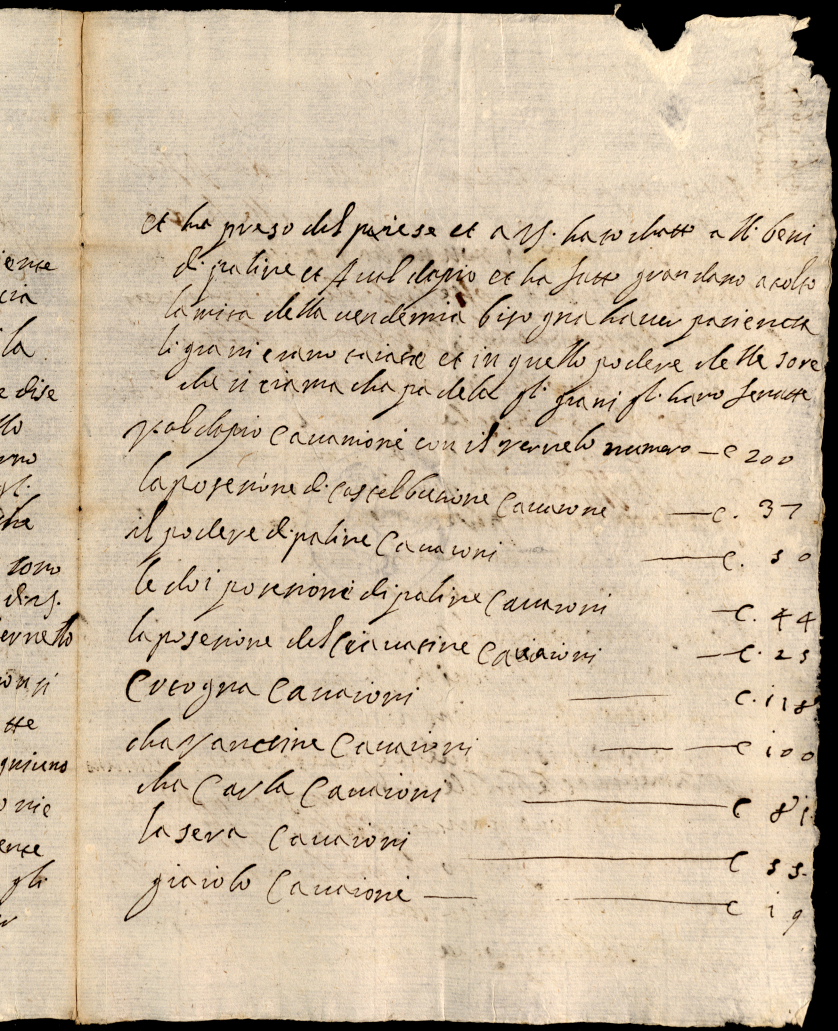 et ha preso del paese et a V.S. ha to chatto a li beni
di paline et Aual dapio et ha fatto gran dano a colto
la mita della uendemia biso gnia hauer pasiencia
li grani erano et in quello podere delle sore
che si ciama cha padela gli grani gli hano
Valdapio Cauaioni con il vernelo numero — C 200
la posesione di castelbusone Cauaione — C. 37
il podere di paline Cauaioni — C. 50
le doi posesioni di paline Cauaioni — C. 44
la posesione del Ciauasine Cauaioni — C. 25
Cotogna Cauaioni — C. 118
cha Vancine Cauaioni — C 100
cha Carla Cauaioni — C 81
la sera Cauaioni — C 55
giaiolo Cauaione — C 19
iente
cia
la
e dise
llo
erno
gli
che
sono
di V.S.
ernello
tte
gniuno
o nie
ente
gli